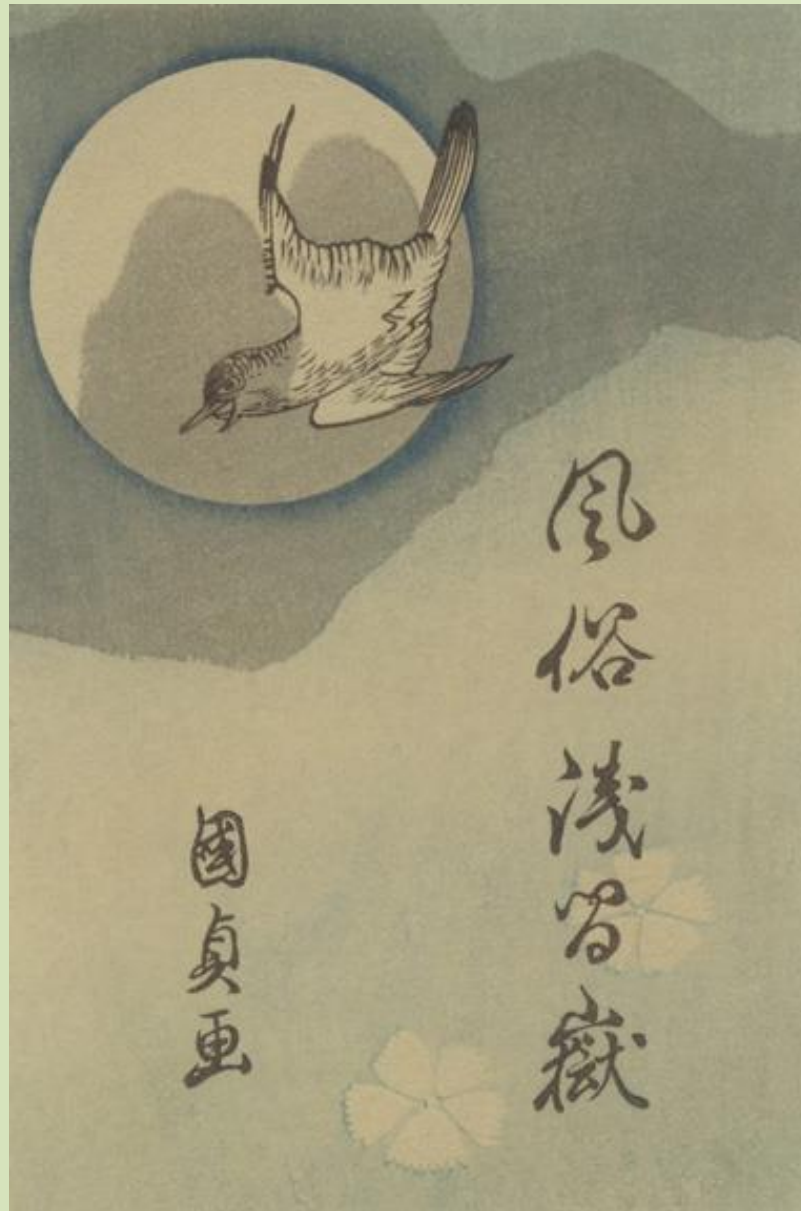 風俗浅間嶽
國貞画